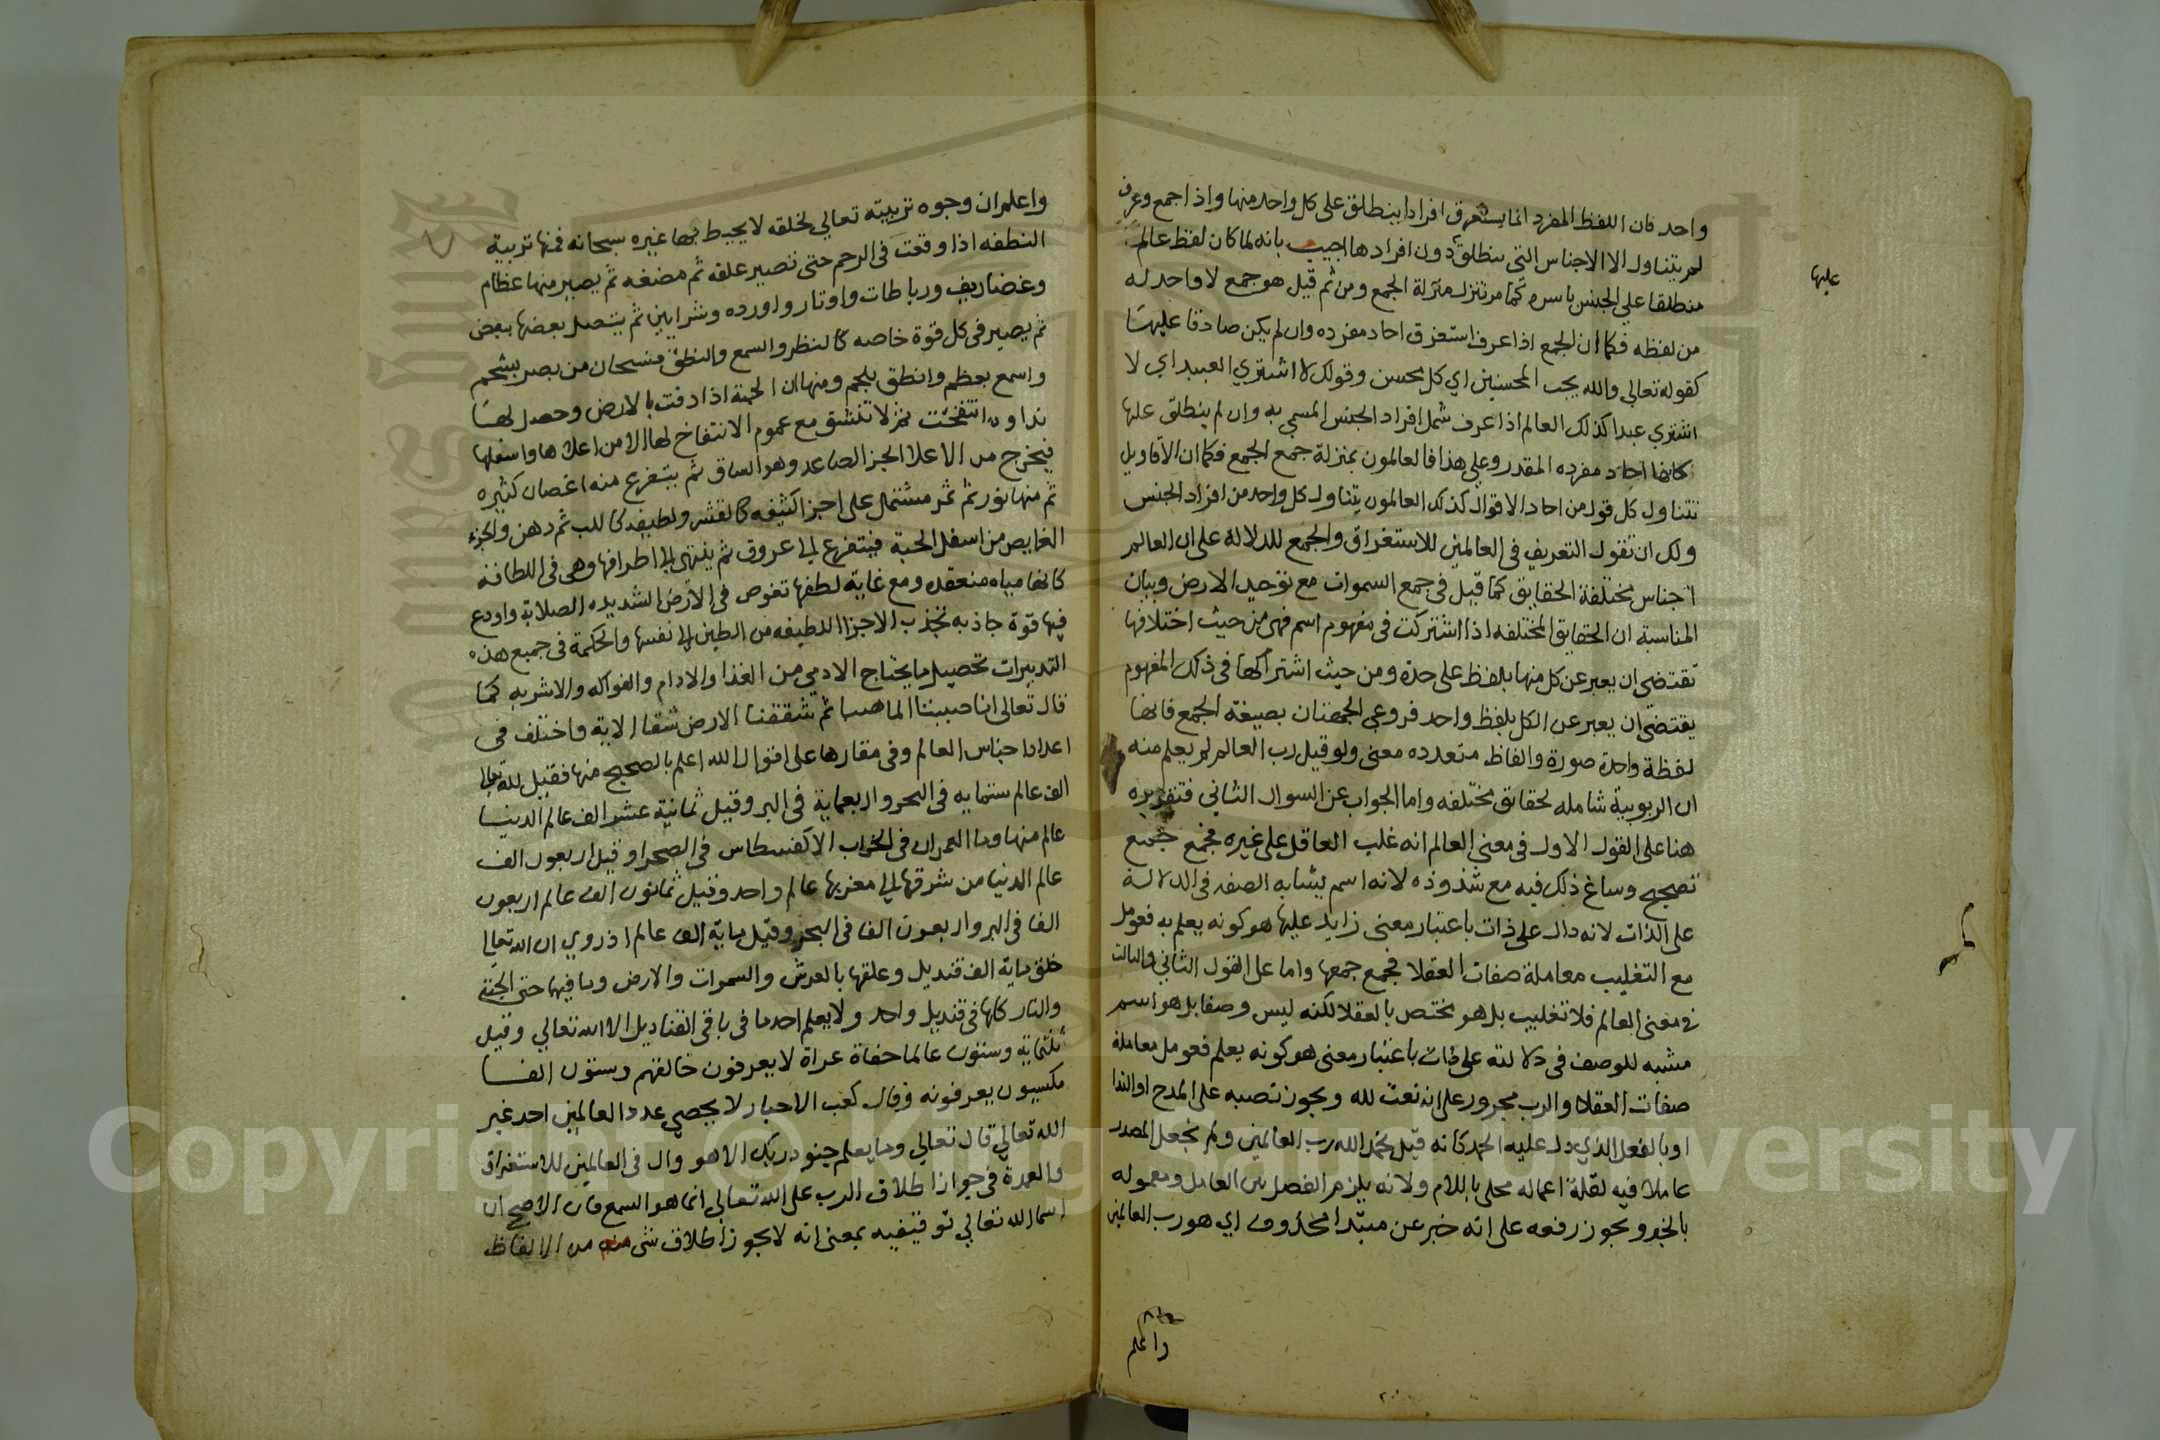 واحد فان اللفظ المفرد انما يستغرق افرادا ينطلق على كل واحد منها واذا جمع وعرف
لم يتناول الا الاجناس التي ينطلق دون افرادها اجيب بانه لما كان لفظ عالم
عليها
منطلقا على الجنس باسره كما مر تنزل منزلة الجمع ومن ثم قيل هو جمع لا واحد له
من لفظه فكما ان الجمع اذا عرف استغرق احاد مفرده وان لم يكن صادقا عليها
كقوله تعالى والله يحب المحسنين اي كل محسن وقولك لا اشتري العبيد اي لا
اشتري عبدا كذلك العالم اذا عرف شمل افراد الجنس المسمى به وان لم ينطلق عليها
كانها احاد مفرده المقدر وعلى هذا فالعالمون بمنزلة جمع الجمع فكما ان الاقاويل
تتناول كل قول من احاد الاقوال كذلك العالمون يتناول كل واحد من افراد الجنس
ولك ان تقول التعريف في العالمين للاستغراق والجمع للدلالة على ان العالم
اجناس مختلفة الحقايق كما قيل في جمع السموات مع توحيد الارض وبيان
المناسبة ان الحقايق المختلفه اذا اشتركت في مفهوم اسم فهي من حيث اختلافها
تقتضي ان يعبر عن كل منها بلفظ على حدة ومن حيث اشتراكها في ذلك المفهوم
يقتضي ان يعبر عن الكل بلفظ واحد فروعي الجهتان بصيغة الجمع فانها
لفظة واحدة صورة والفاظ متعدده معنى ولو قيل رب العالم لم يعلم منه
ان الربوبية شامله لحقائق مختلفه واما الجواب عن السوال الثاني فتقريره
هنا على القول الاول في معنى العالم انه غلب العاقل على غيره فجمع جمع
تصحيح وساغ ذلك فيه مع شذوذه لانه اسم يشابه الصفه في الدلالة
على الذات لانه دال على ذات باعتبار معنى زايد عليها هو كونه يعلم به فعومل
مع التغليب معاملة صفات العقلا فجمع جمعها واما على القول الثاني والثالث
في معنى العالم فلا تغليب بل هو مختص بالعقلا لكنه ليس وصفا بل هو اسم
مشبه للوصف في دلالته على ذات باعتبار معنى هو كونه يعلم فعومل معاملة
صفات العقلا والرب مجرور على انه نعت لله ويجوز نصبه على المدح او الندا
او بالفعل الذي دل عليه الحمد كانه قيل نحمد الله رب العالمين ولم نجعل المصدر
عاملا فيه لقلة اعماله محلى باللام ولانه يلزم الفصل بين العامل ومعموله
بالخبر ويجوز رفعه على انه خبر عن مبتدا محذوف اي هو رب العالمين
واعلم
واعلم ان وجوه تربيته تعالى لخلقه لا يحيط بها غيره سبحانه فمنها تربية
النطفه اذا وقعت في الرحم حتى تصير علقه ثم مضغه ثم يصير منها عظام
وغضاريف ورباطات واوتار واورده وشرايين ثم يتصل بعضها ببعض
ثم يصير في كل قوة خاصه كالنظر والسمع والنطق فسبحان من بصر بشحم
واسمع بعظم وانطق بلحم ومنها ان الحبة اذا دفت بالارض وحصل لها
نداوه انتفخت ثم لا تنشق مع عموم الانتفاخ لها الا من اعلاها واسفلها
فيخرج من الاعلا الجز الصاعد وهو الساق ثم يتفرع منه اغصان كثيره
ثم منها نور ثم ثمر مشتمل على اجزا كثيفه كالقشر ولطيفه كاللب ثم دهن والجزء
الغايص من اسفل الحبة فيتفرع الى عروق ثم ينتهى الى اطرافها وهى في اللطافة
كانها مياه منعقده ومع غاية لطفها تغوص في الارض الشديده الصلابة واودع
فيها قوة جاذبه تجذب الاجزا اللطيفه من الطين الى نفسها والحكمة في جميع هذه
التدبيرات تحصيل ما يحتاج الادمي من الغذا والادام والفواكه والاشربه كما
قال تعالى انا صببنا الما صبا ثم شققنا الارض شقا الاية واختلف في
اعداد اجناس العالم وفي مقارها على اقوال الله اعلم بالصحيح منها فقيل لله تعالى
الف عالم ستمايه في البحر واربعماية في البر وقيل ثمانية عشر الف عالم الدنيا
عالم منها وما العمران في الخراب الا كفسطاس في الصحرا وقيل اربعون الف
عالم الدنيا من شرقها الى مغربها عالم واحد وقيل ثمانون الف عالم اربعون
الفا في البر واربعون الفا في البحر وقيل ماية الف عالم اذ روي ان الله تعالى
خلق ماية الف قنديل وعلقها بالعرش والسموات والارض وما فيها حتى الجنة
والنار كلها في قنديل واحد ولا يعلم احد ما في باقي القناديل الا الله تعالى وقيل
ثلثماية وستون عالما حفاة عراة لا يعرفون خالقهم وستون الفا
مكسيون يعرفونه وقال كعب الاحبار لا يحصي عدد العالمين احد غير
الله تعالى قال تعالى وما يعلم جنود ربك الا هو وال في العالمين للاستغراق
والعمدة في جواز اطلاق الرب على الله تعالى انما هو السمع فان الاصح ان
اسما الله تعالى توقيفيه بمعنى انه لا يجوز اطلاق شى من الالفاظ
Copyright © King Saud University